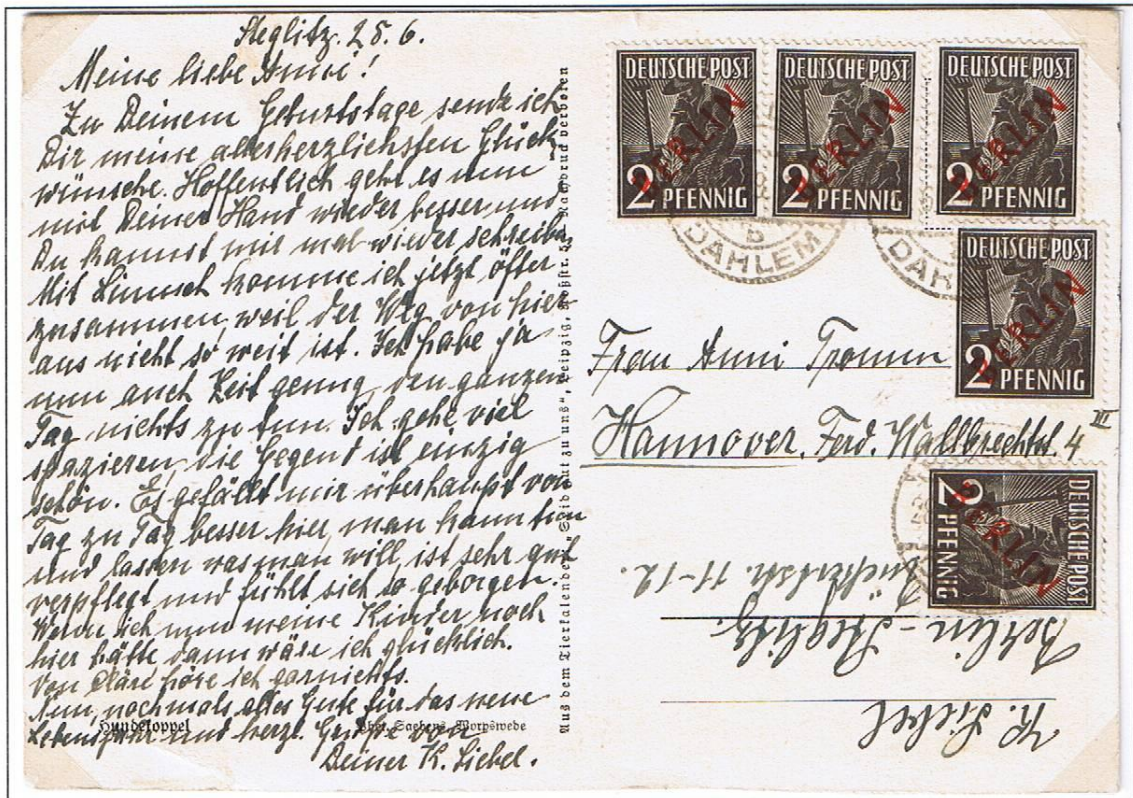 Steglitz. 25.6.
Meine liebe Anni!
Zu Deinem Geburtstage sende ich
Dir meine allerherzlichsten Glück-
wünsche. Hoffentlich geht es nun
mit Deiner Hand wieder besser und
Du kannst mir mal wieder schreiben.
Mit komme ich jetzt öfter
zusammen, weil der Weg von hier
aus nicht so weit ist. Ich habe ja
nun auch Zeit genug, den ganzen
Tag nichts zu tun. Ich gehe viel
spazieren, die Gegend ist einzig
schön. Es gefällt mir überhaupt von
Tag zu Tag besser hier, man kann tun
und lassen was man will, ist sehr gut
verpflegt und fühlt sich so geborgen.
Wenn ich nun meine Kinder noch
hier hätte dann wäre ich glücklich.
Von höre ich garnichts.
Nun nochmals alles Gute für das neue
Lebensjahr und herzl. Grüße von
Deiner K. Liebel.
Hundekoppel
Worpswede
Aus dem Tierkalender "Seid gut zu uns", Leipzig, Nachdruck verboten
DEUTSCHE POST
BERLIN
2 PFENNIG
DEUTSCHE POST
BERLIN
2 PFENNIG
DEUTSCHE POST
BERLIN
2 PFENNIG
DAHLEM
DAH
DEUTSCHE POST
BERLIN
2 PFENNIG
Frau Anni Tromm
Hannover. Ferd. Wallbrechtst. 4 III
DEUTSCHE POST
BERLIN
2 PFENNIG
K. Liebel
Berlin-Steglitz.
11-12.